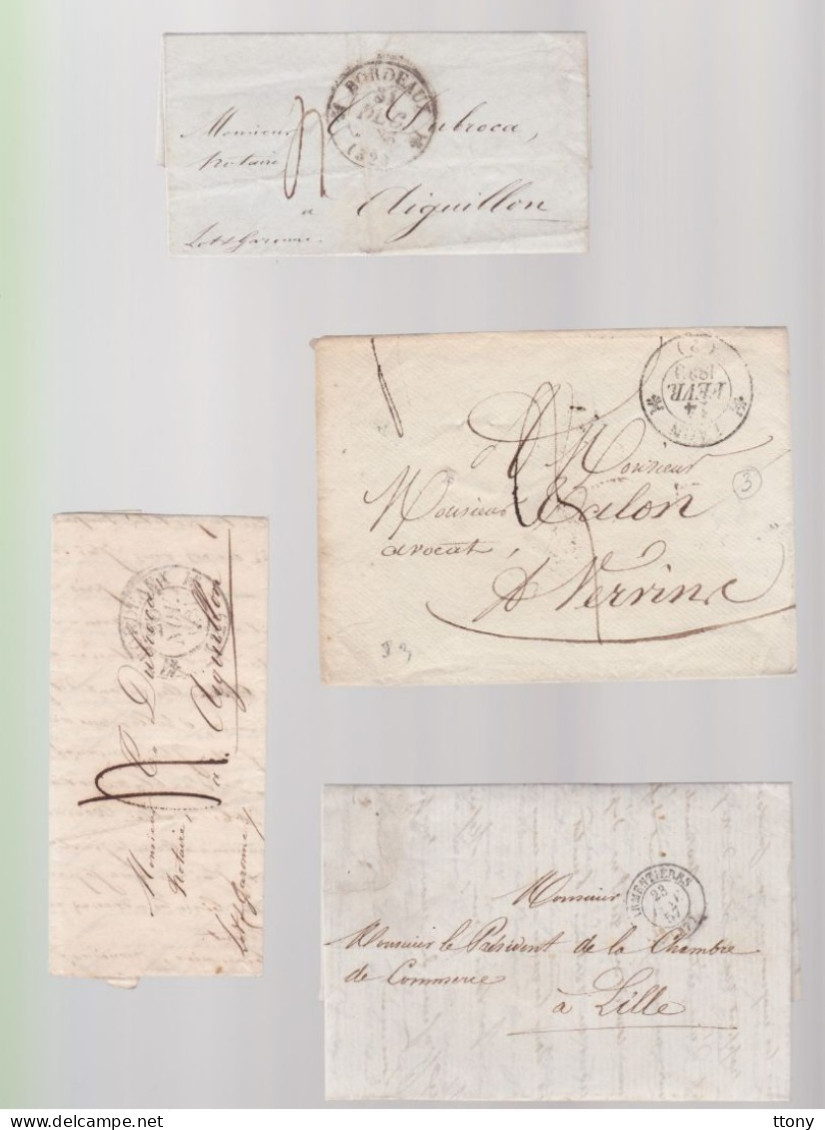 BORDEAUX
DEC
(32)
Monsieur Dubroca,
Notaire
à Aiguillon
Lot & Garonne.
(2)
FEVR.
LAON
à Monsieur
Monsieur Talon
avocat,
A Vervins
3
Monsieur C. Dubroca
Notaire,
à Aiguillon
Lot & Garonne
ARMENTIÈRES
23
57
Monsieur
Monsieur le Président de la Chambre
de Commerce
à Lille
ttony